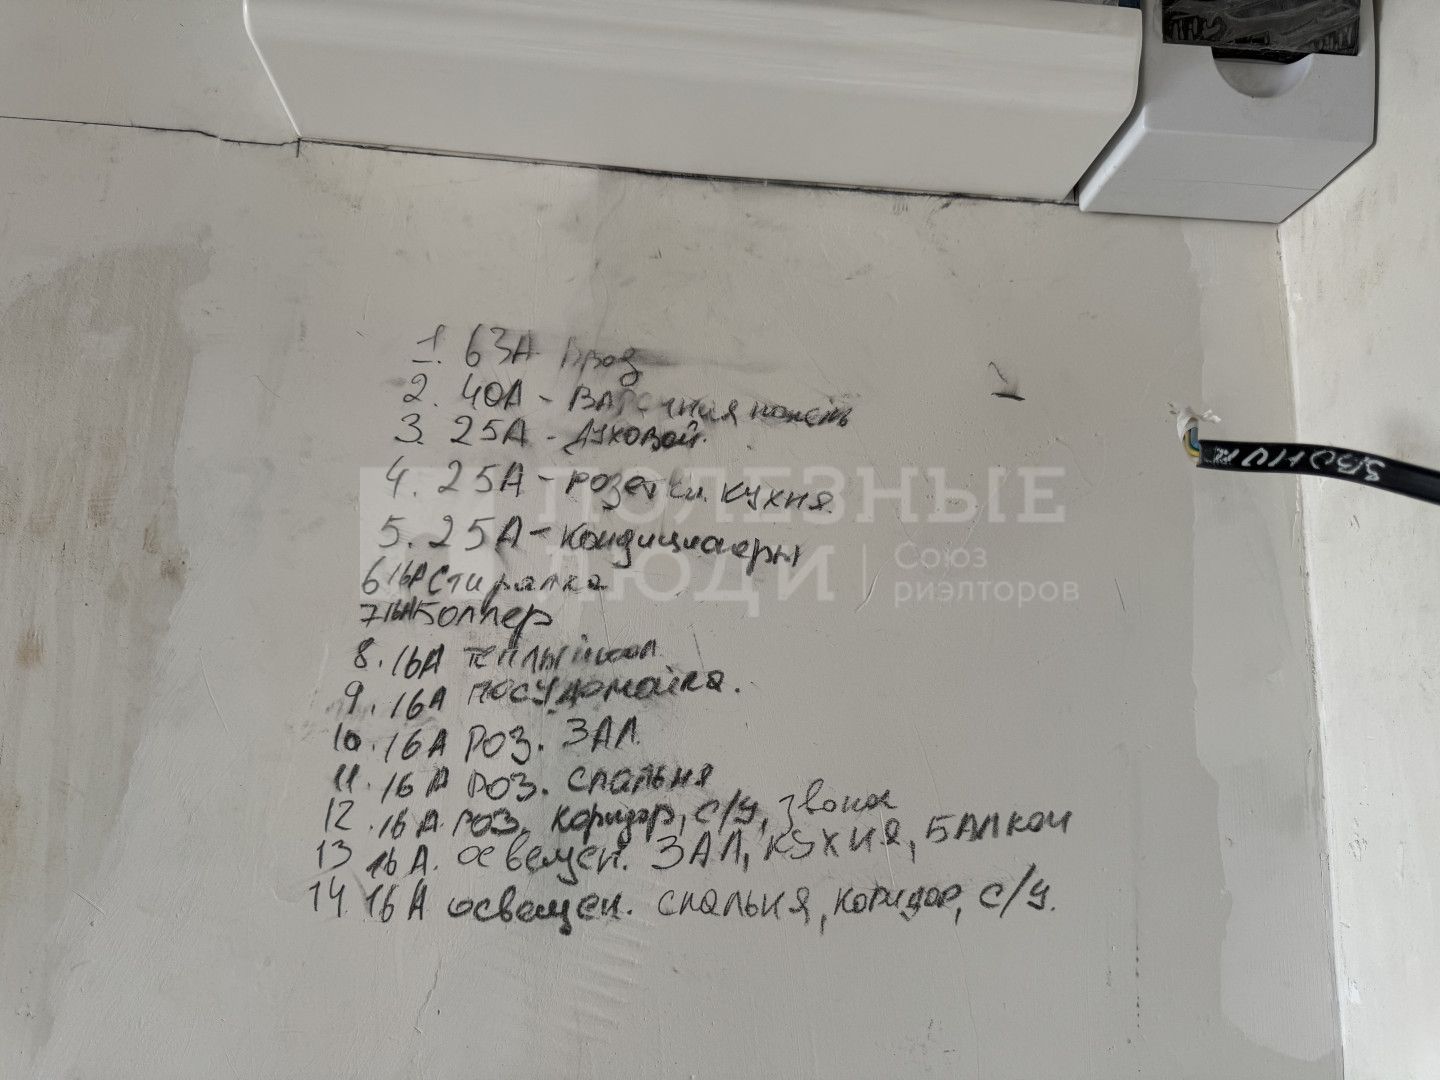 1. 63А Ввод
2. 40А - Варочная панель
3. 25А - Духовой.
4. 25А - розетки кухня.
5. 25А - Кондиционеры
6 16А Стиралка
7 16А Боллер
8. 16А теплый пол
9. 16А посудомойка.
10. 16А РОЗ. ЗАЛ
11. 16А РОЗ. спальня
12. 16А РОЗ. коридор, с/у, звонок
13 16А. освещен. ЗАЛ, КУХНЯ, БАЛКОН
14 16А освещен. спальня, коридор, с/у.
ЗВОНОК
ПОЛЕЗНЫЕ
ЛЮДИ
Союз
риэлторов